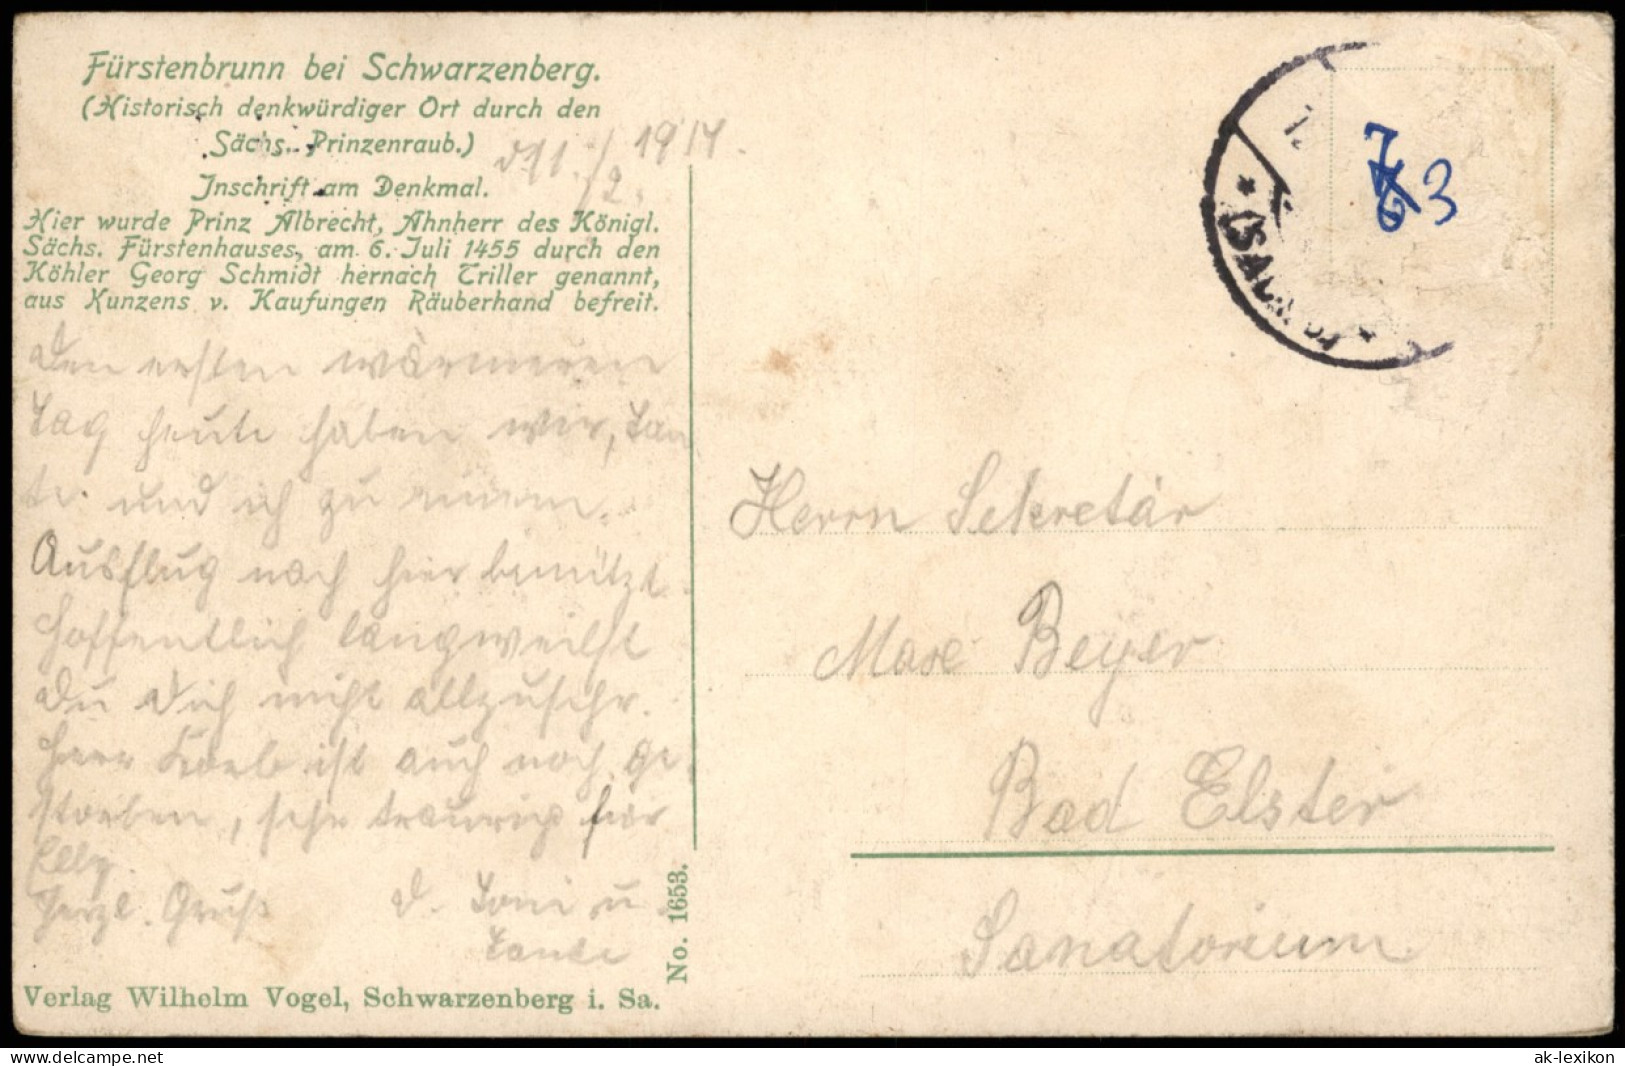 Fürstenbrunn bei Schwarzenberg.
(Historisch denkwürdiger Ort durch den
Sächs. Prinzenraub.)
Inschrift am Denkmal.
Hier wurde Prinz Albrecht, Ahnherr des Königl.
Sächs. Fürstenhauses, am 6. Juli 1455 durch den
Köhler Georg Schmidt hernach Triller genannt,
aus Kunzens v. Kaufungen Räuberhand befreit.
d 11./2. 1914.
Den ersten wärmeren
Tag heute haben wir, Tan
te und ich zu einem
Ausflug nach hier benützt.
Hoffentlich langweilst
Du Dich nicht allzusehr.
Herr ist auch noch ge
storben, sehr traurig für
Elly.
Herzl. Gruß d. Toni u.
Tante
Verlag Wilhelm Vogel, Schwarzenberg i. Sa.
No. 1653.
(SACHS
7
63
Herrn Sekretär
Max Beyer
Bad Elster
Sanatorium.
delcampe.net
ak-lexikon